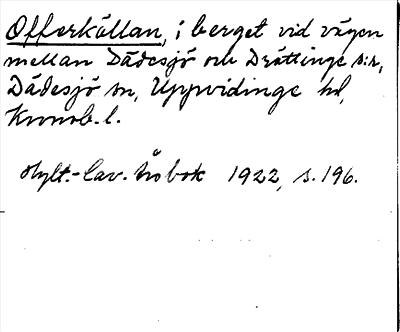 Offerkällan, i berget vid vägen
mellan Dädesjö och Drättinge s:n,
Dädesjö sn, Uppvidinge hd,
Kronob. l.
Hylt.-Cav. årsbok 1922, s. 196.